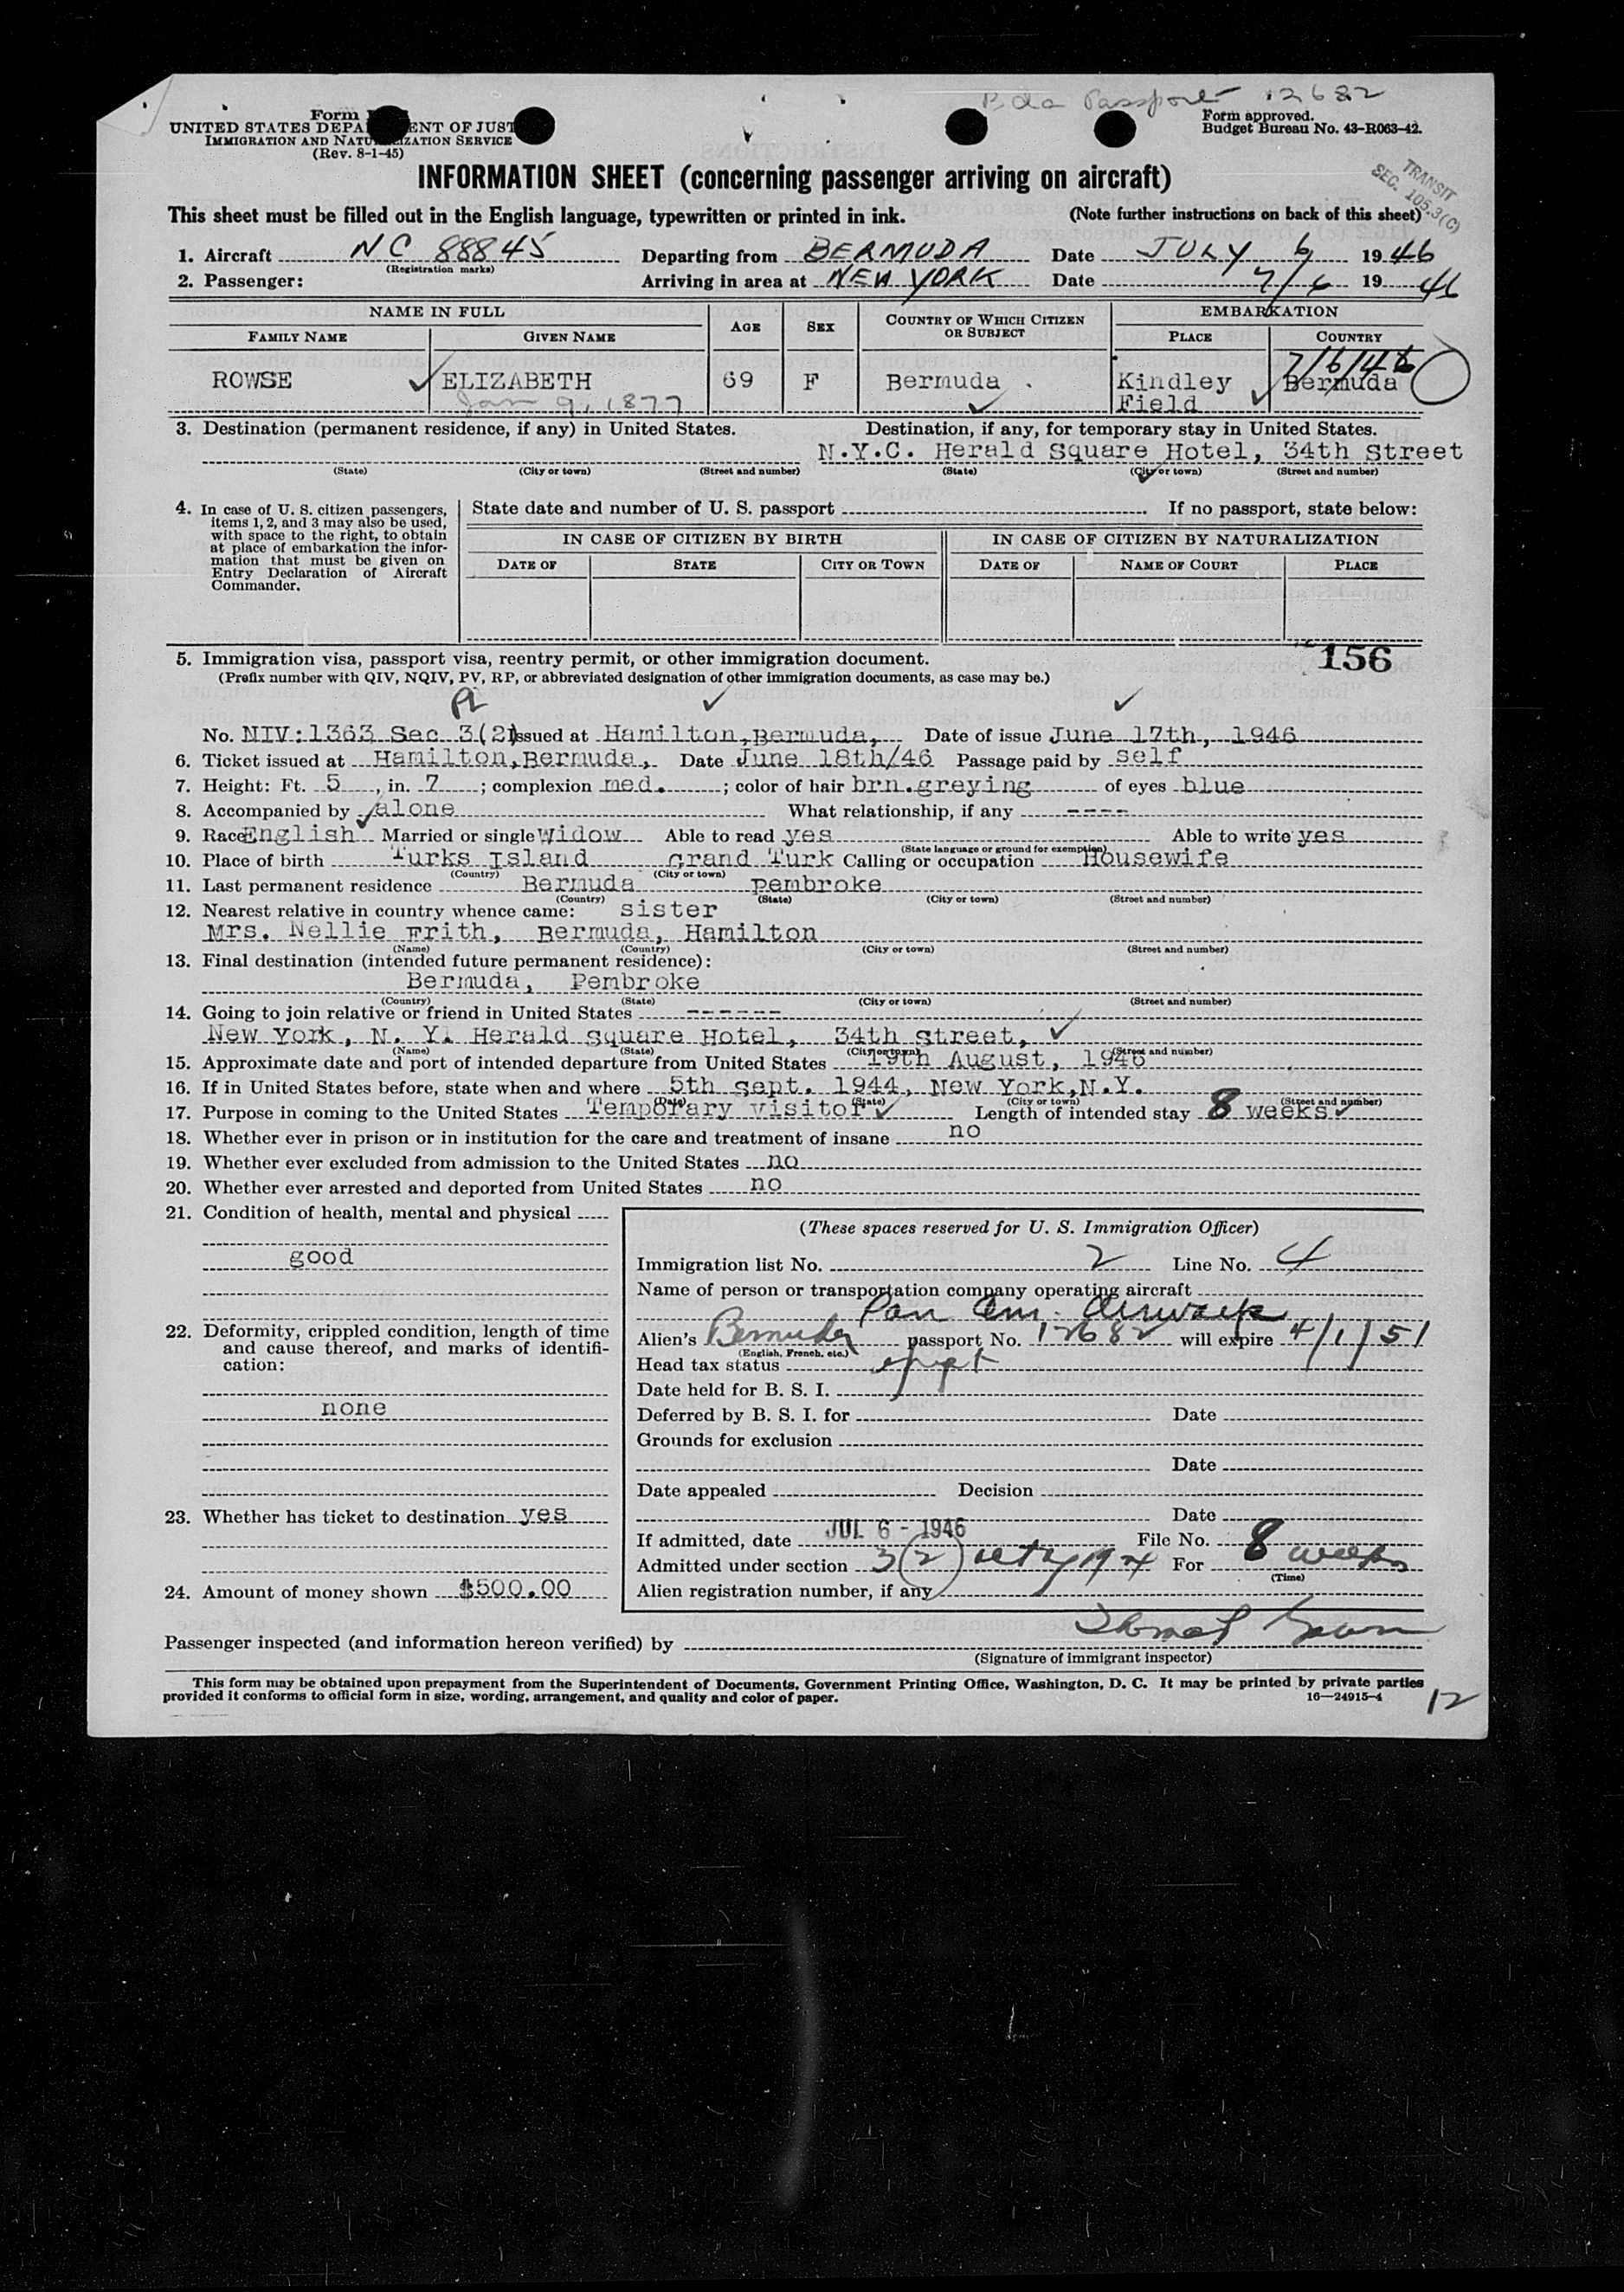 Bda Passport 12682
Form
UNITED STATES DEPA ENT OF JUST
IMMIGRATION AND NATU IZATION SERVICE
(Rev. 8-1-45)
Form approved.
Budget Bureau No. 43-R063-42.
TRANSIT
SEC. 105.3(C)
INFORMATION SHEET (concerning passenger arriving on aircraft)
This sheet must be filled out in the English language, typewritten or printed in ink. (Note further instructions on back of this sheet)
1. Aircraft NC 88845 Departing from BERMUDA Date JULY 6 1946
(Registration marks)
2. Passenger: Arriving in area at NEW YORK Date 7/6 19 46
NAME IN FULL AGE SEX COUNTRY OF WHICH CITIZEN OR SUBJECT EMBARKATION
FAMILY NAME GIVEN NAME PLACE COUNTRY
7/6/46
ROWSE ELIZABETH 69 F Bermuda Kindley Field Bermuda
Jan 9, 1877
3. Destination (permanent residence, if any) in United States. Destination, if any, for temporary stay in United States.
N.Y.C. Herald Square Hotel, 34th Street
(State) (City or town) (Street and number) (State) (City or town) (Street and number)
4. In case of U. S. citizen passengers, items 1, 2, and 3 may also be used, with space to the right, to obtain at place of embarkation the information that must be given on Entry Declaration of Aircraft Commander.
State date and number of U. S. passport If no passport, state below:
IN CASE OF CITIZEN BY BIRTH IN CASE OF CITIZEN BY NATURALIZATION
DATE OF STATE CITY OR TOWN DATE OF NAME OF COURT PLACE
156
5. Immigration visa, passport visa, reentry permit, or other immigration document.
(Prefix number with QIV, NQIV, PV, RP, or abbreviated designation of other immigration documents, as case may be.)
No. NIV:1363 Sec 3(2) Issued at Hamilton, Bermuda, Date of issue June 17th, 1946
6. Ticket issued at Hamilton, Bermuda, Date June 18th/46 Passage paid by self
7. Height: Ft. 5, in. 7; complexion med.; color of hair brn.greying of eyes blue
8. Accompanied by alone What relationship, if any ----
9. Race English Married or single Widow Able to read yes Able to write yes
(State language or ground for exemption)
10. Place of birth Turks Island Grand Turk Calling or occupation Housewife
(Country) (City or town)
11. Last permanent residence Bermuda Pembroke
(Country) (State) (City or town) (Street and number)
12. Nearest relative in country whence came: sister
Mrs. Nellie Frith, Bermuda, Hamilton
(Name) (Country) (City or town) (Street and number)
13. Final destination (intended future permanent residence):
Bermuda, Pembroke
(Country) (State) (City or town) (Street and number)
14. Going to join relative or friend in United States ------
New York, N. Y. Herald Square Hotel, 34th Street,
(Name) (State) (City or town) (Street and number)
15. Approximate date and port of intended departure from United States 19th August, 1946
16. If in United States before, state when and where 5th Sept. 1944, New York, N.Y.
(Date) (State) (City or town) (Street and number)
17. Purpose in coming to the United States Temporary visitor Length of intended stay 8 weeks
18. Whether ever in prison or in institution for the care and treatment of insane no
19. Whether ever excluded from admission to the United States no
20. Whether ever arrested and deported from United States no
21. Condition of health, mental and physical
good
22. Deformity, crippled condition, length of time and cause thereof, and marks of identification:
none
23. Whether has ticket to destination yes
24. Amount of money shown $500.00
(These spaces reserved for U. S. Immigration Officer)
Immigration list No. 2 Line No. 4
Name of person or transportation company operating aircraft
Pan Am. Airways
Alien's Bermuda passport No. 12682 will expire 4/1/51
(English, French, etc.)
Head tax status
Date held for B. S. I.
Deferred by B. S. I. for Date
Grounds for exclusion
Date
Date appealed Decision
Date
If admitted, date JUL 6 - 1946 File No.
Admitted under section 3(2) For 8 weeks
(Time)
Alien registration number, if any
Passenger inspected (and information hereon verified) by
(Signature of immigrant inspector)
This form may be obtained upon prepayment from the Superintendent of Documents, Government Printing Office, Washington, D. C. It may be printed by private parties
provided it conforms to official form in size, wording, arrangement, and quality and color of paper. 16—24915-4
12